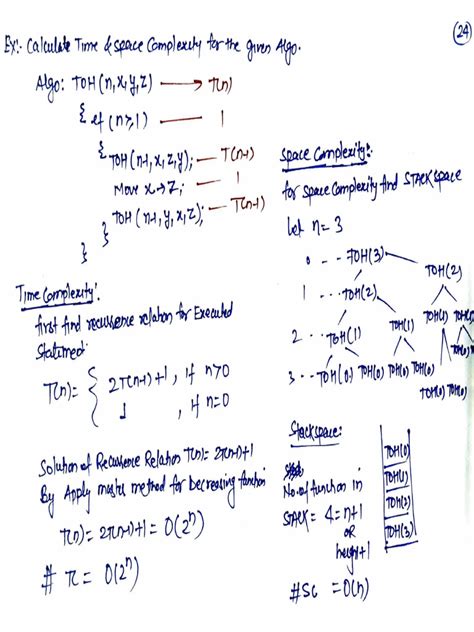 24
Ex:- Calculate Time & space Complexity for the given Algo.
Algo: TOH(n,x,y,z) → T(n)
{ if (n≥1) — 1
{ TOH(n-1,x,z,y); — T(n-1)
Move x→z; — 1
TOH(n-1,y,x,z); — T(n-1)
}
}
Time Complexity:
first find recurrence relation for Executed
Statement:
T(n)= { 2T(n-1)+1, if n>0
1, if n=0
Solution of Recurrence Relation T(n)=2T(n-1)+1
By Apply master method for decreasing function
T(n)=2T(n-1)+1=O(2ⁿ)
# TC= O(2ⁿ)
Space Complexity:
for space Complexity find STACK space
Let n=3
0 ... TOH(3) TOH(2)
1 ... TOH(2) TOH(1) TOH(0)
2 ... TOH(1) TOH(1)
3 ... TOH(0) TOH(0) TOH(0) TOH(0)
TOH(0) TOH(0)
Stack space:
No. of function in
STACK = 4 = n+1
OR
height+1
#SC =O(n)
TOH(0)
TOH(1)
TOH(2)
TOH(3)